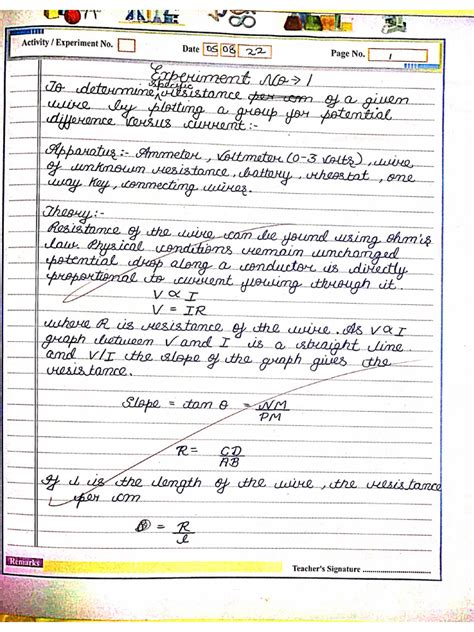 Activity / Experiment No.
Date 05 08 22
Page No. 1
Experiment No → 1
specific
To determine resistance per cm of a given
wire by plotting a group for potential
difference versus current :-
Apparatus :- Ammeter, Voltmeter (0-3 volts), wire,
of unknown resistance, battery, rheostat, one
way key, connecting wires.
Theory :-
Resistance of the wire can be found using ohm's
law. Physical conditions remain unchanged
potential drop along a conductor is directly
proportional to current flowing through it.
V ∝ I
V = IR
where R is resistance of the wire. As V ∝ I
graph between V and I is a straight line
and V/I the slope of the graph gives the
resistance.
Slope = tan θ = NM
PM
R = CD
AB
If l is the length of the wire, the resistance
per cm
= R
l
Remarks
Teacher's Signature